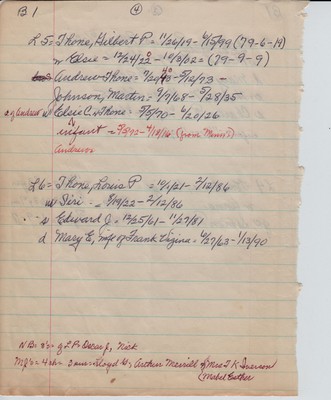 B1 4
L5 = Thone, Hilbert P = 11/26/19 - 4/15/99 (79-6-19)
w Elsie = 12/24/22 - 10/3/02 = (79-9-9)
Andrew Thone = 7/24/43 - 5/12/73 -
Johnson, Martin = 9/9/68 - 5/28/35
w Elsie C. Thone = 7/5/70 - 6/20/26
infant = (from Minn's)
Andrew
L6 = Thone, Louis P = 10/1/21 - 2/12/86
w Siri = 8/19/22 - 2/12/86
s Edward J = 12/25/61 - 11/27/81
d Mary E, wife of Frank Vizina = 6/27/63 - 1/13/90
NB: Oscar J, Nick
4 ch = Lloyd G, Arthur Merrill Mrs T K Iverson
(Mabel Esther